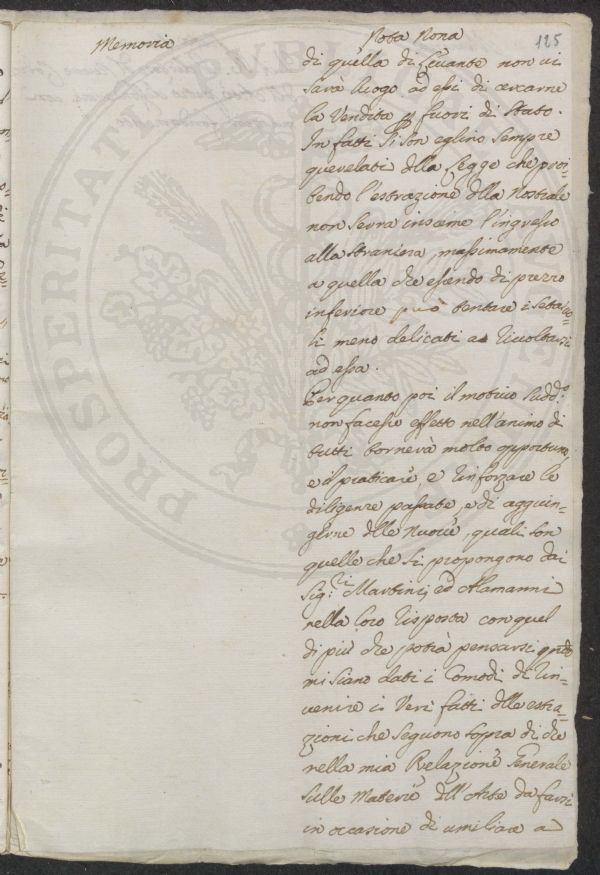 Memoria
Nota Nona
125
di quella di Levante non vi
sarà luogo ad essi di cercarne
la Vendita p fuori di Stato.
In fatti si son eglino sempre
querelati dlla Legge che proi=
bendo l'estrazione dlla Nostrale
non serra insieme l'ingresso
alla straniera, massimamente
a quella che essendo di prezzo
inferiore può tentare i Setaio=
li meno delicati a rivoltarsi
ad essa.
Per quanto poi il motivo sudd.º
non facesse effetto nell'animo di
tutti tornerà molto opportuno,
e il praticare, e rinforzare le
diligenze passate, e di aggiun=
gerne dlle Nuove, quali son
quelle che si propongono dai
Sig.ri Martini, ed Alamanni
nella loro risposta con quel
di più che potrà pensarsi qndo
mi siano dati i Comodi di rin=
venire i Veri fatti dlle estra=
zioni che seguono sopra di che
nella mia Relazione Generale
sulle Materie dll'Arte da farsi
in occasione di umiliare a
PROSPERITATI PUBLICAE